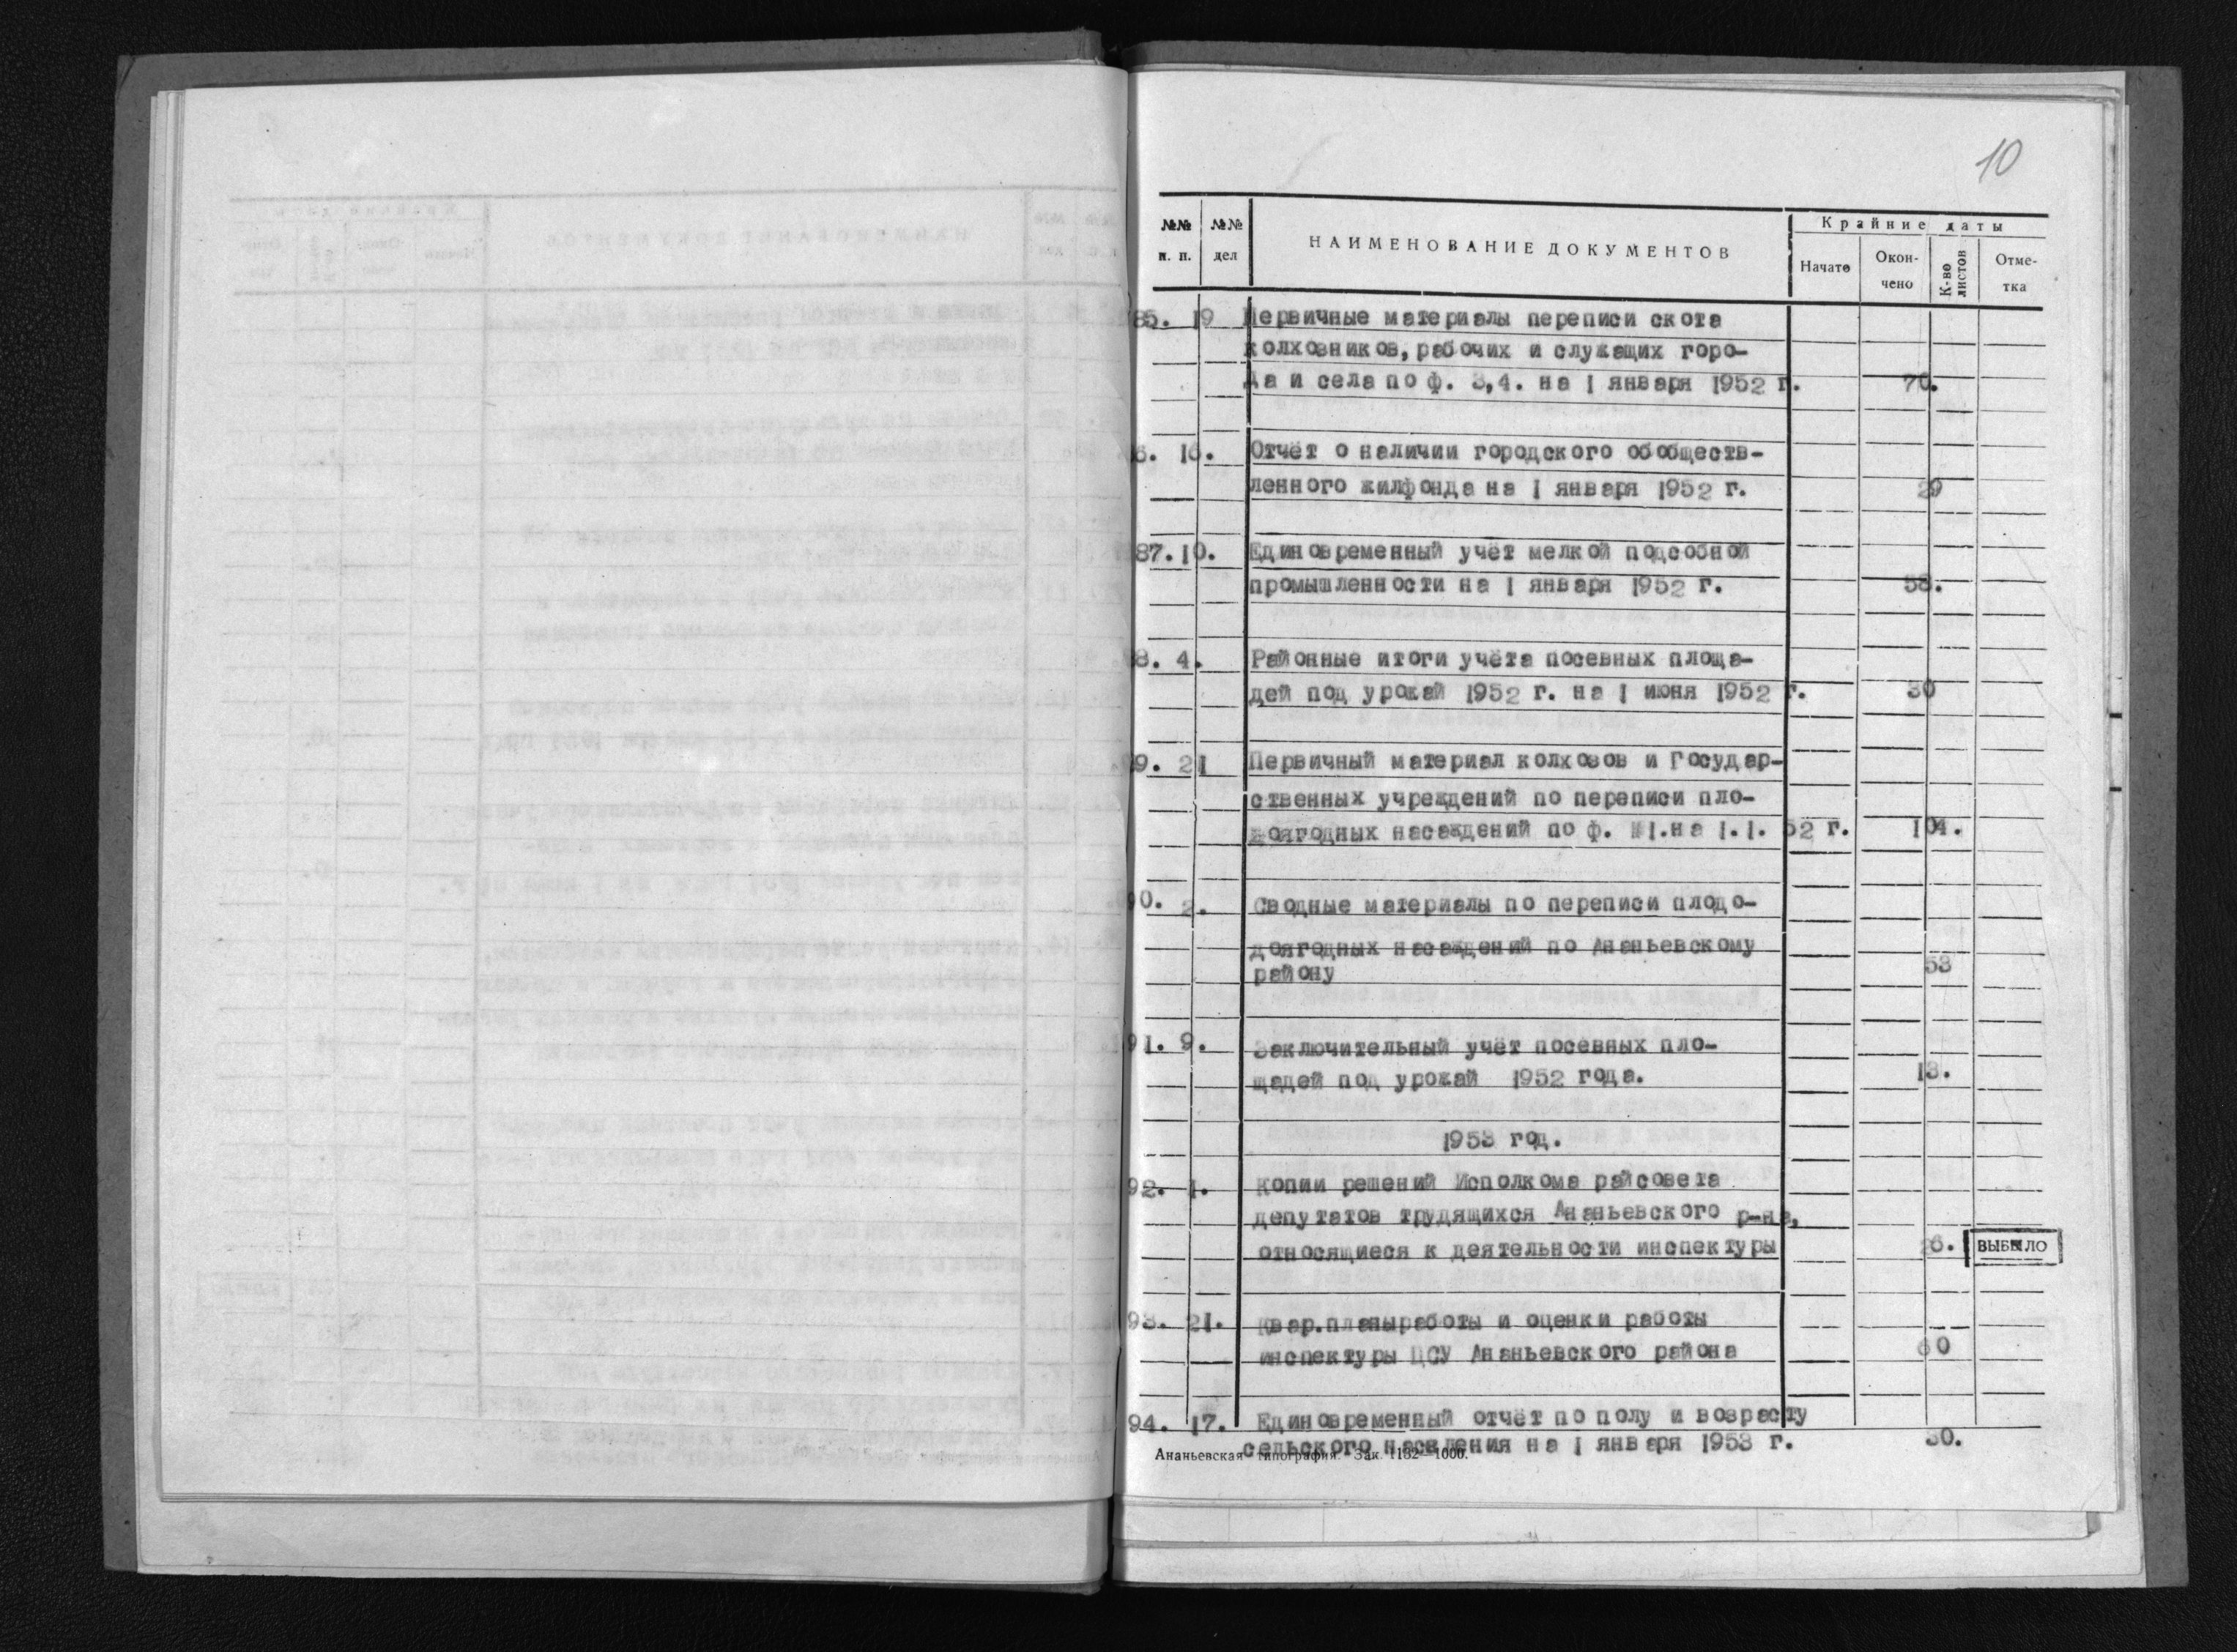 10
№№ п. п. №№ дел НАИМЕНОВАНИЕ ДОКУМЕНТОВ Крайние даты
Начато Окон-чено К-во листов Отме-тка
85. 19 Первичные материалы переписи скота
колхозников, рабочих и служащих горо-
да и села по ф. 3,4. на 1 января 1952 г. 70.
6. 10. Отчёт о наличии городского обобществ-
ленного жилфонда на 1 января 1952 г. 29
87. 10. Единовременный учёт мелкой подсобной
промышленности на 1 января 1952 г. 58.
8. 4. Районные итоги учёта посевных площа-
дей под урожай 1952 г. на 1 июня 1952 г. 30
89. 21 Первичный материал колхозов и Государ-
ственных учреждений по переписи пло-
доягодных насаждений по ф. №1. на 1.1. 52 г. 104.
90. 2. Сводные материалы по переписи плодо-
доягодных насаждений по Ананьевскому
району 53
91. 9. Заключительный учёт посевных пло-
щадей под урожай 1952 года. 13.
1953 год.
92. 1. Копии решений Исполкома райсовета
депутатов трудящихся Ананьевского р-на,
относящиеся к деятельности инспектуры 26. ВЫБЫЛО
93. 21. Квар.планыработы и оценки работы
инспектуры ЦСУ Ананьевского района 60
94. 17. Единовременный отчёт по полу и возрасту
сельского населения на 1 января 1953 г. 30.
Ананьевская типография. Зак. 1132—1000.